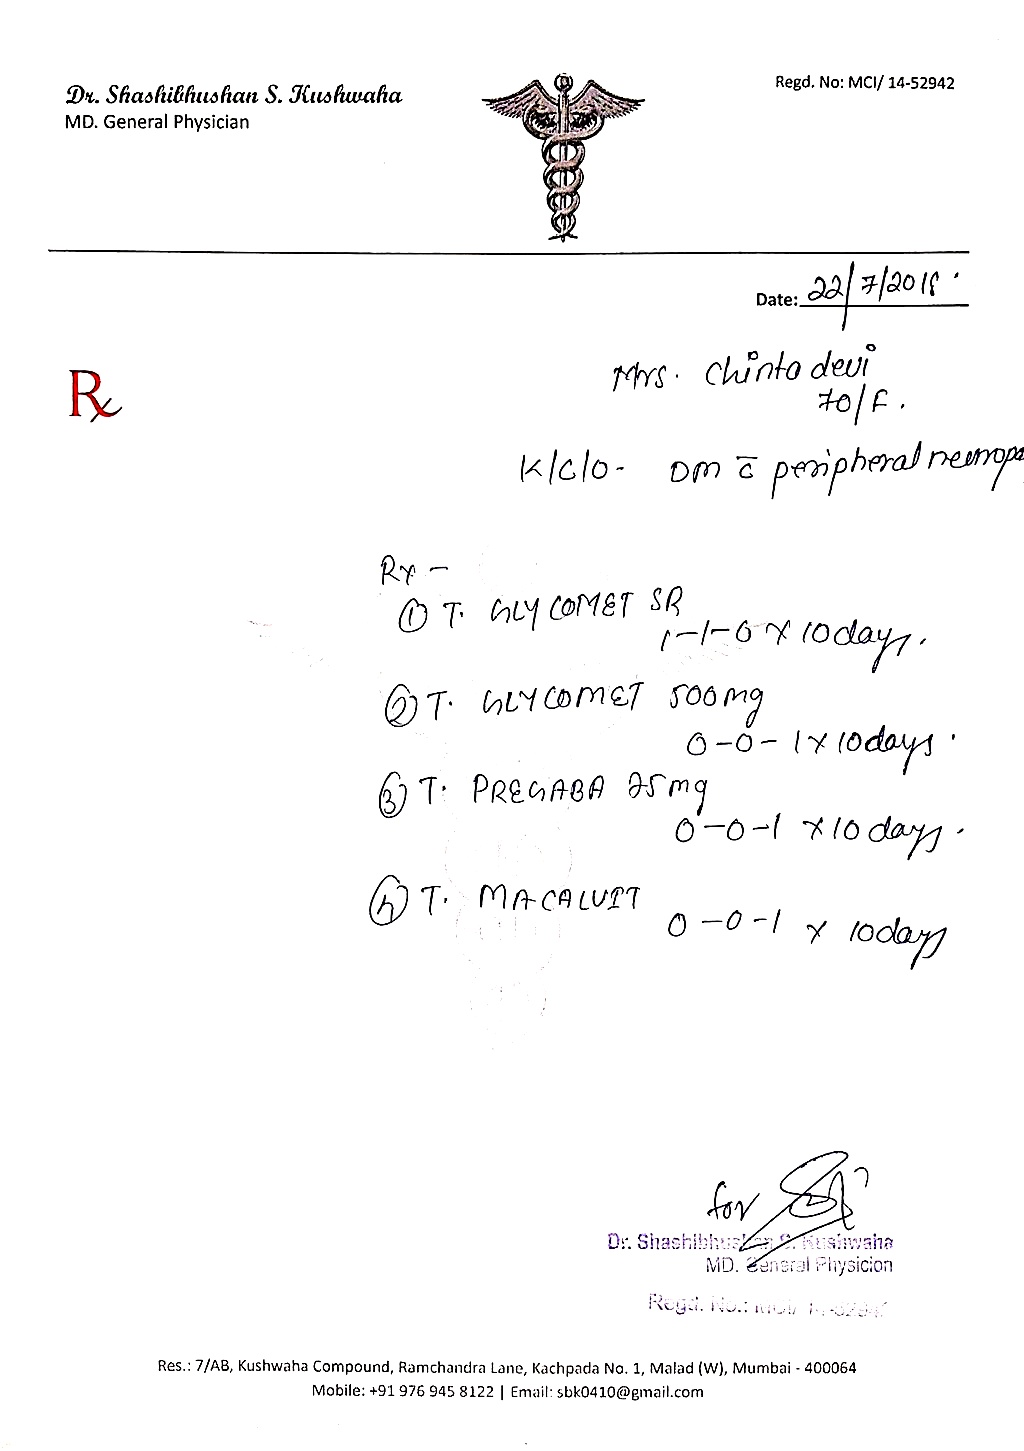 Dr. Shashibhushan S. Kushwaha
MD. General Physician
Regd. No: MCI/ 14-52942
Date: 22/7/2018
Rx
Mrs. Chinta devi
70/F.
K/C/O- DM c̄ peripheral neuropa
Rx -
① T. GLYCOMET SR
1-1-0 x 10 days.
② T. GLYCOMET 500mg
0-0-1 x 10 days.
③ T. PREGABA 75mg
0-0-1 x 10 days.
④ T. MACALVIT
0-0-1 x 10 days
for
Dr. Shashibhushan S. Kushwaha
MD. General Physicion
Regd. No.: MCI/ 14-52942
Res.: 7/AB, Kushwaha Compound, Ramchandra Lane, Kachpada No. 1, Malad (W), Mumbai - 400064
Mobile: +91 976 945 8122 | Email: sbk0410@gmail.com